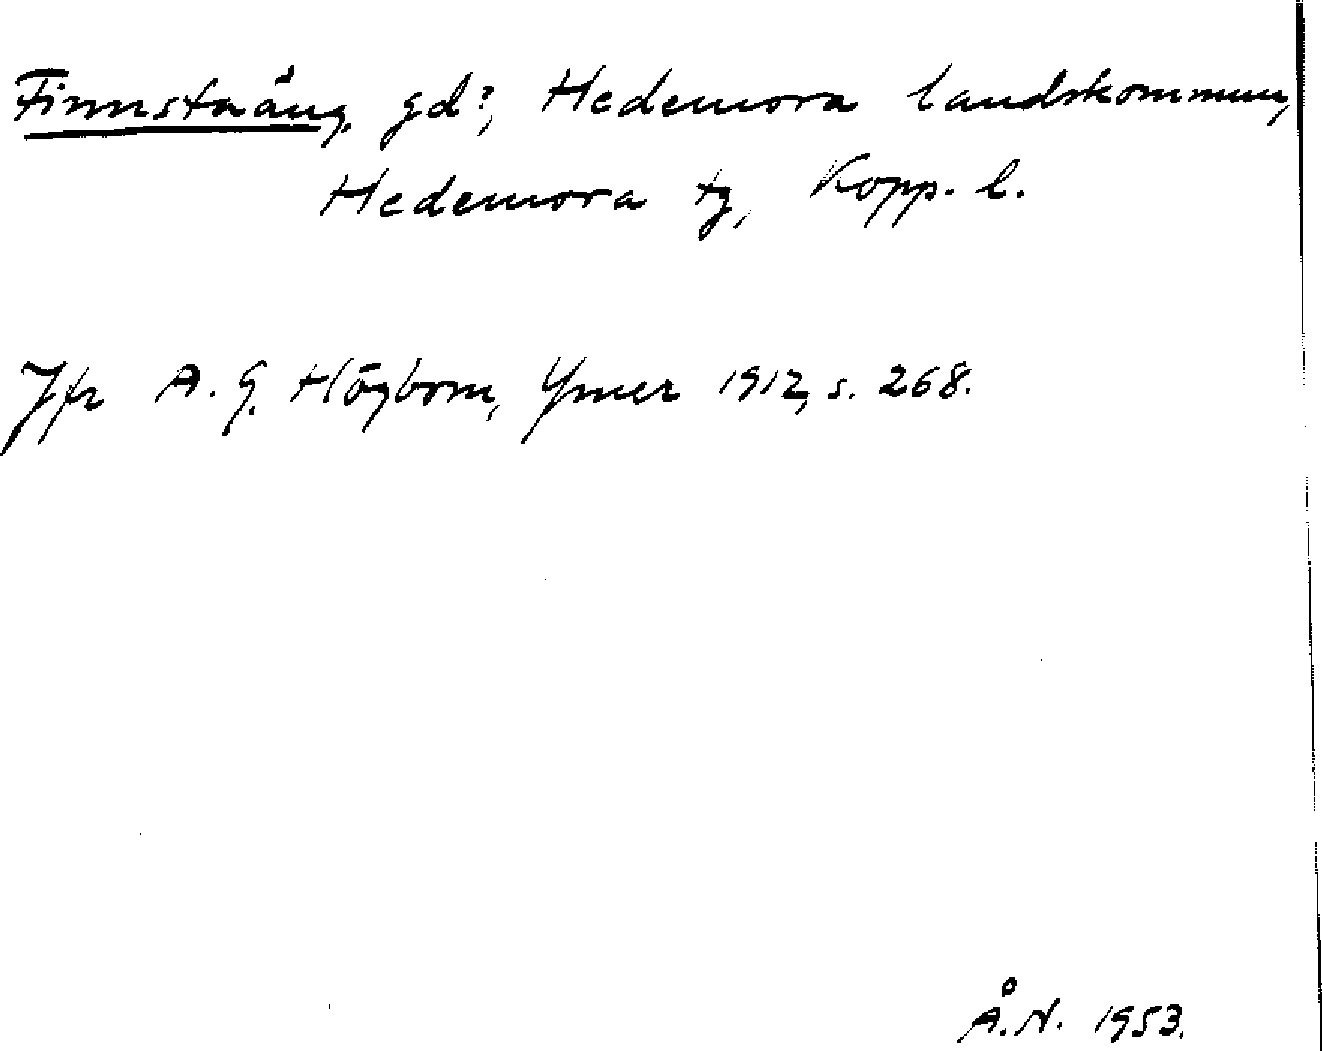 Finnstaäng, gd?, Hedemora landskommun,
Hedemora tg, Kopp. l.
Jfr A. G. Högbom, Ymer 1912, s. 268.
Å.N. 1953.